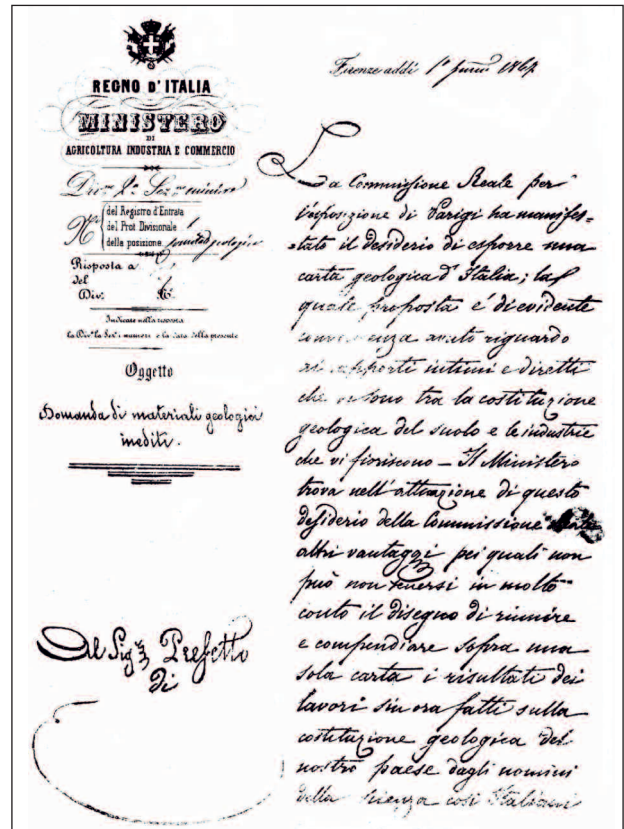 REGNO D'ITALIA
MINISTERO
DI
AGRICOLTURA INDUSTRIA E COMMERCIO
Div.ne 2a Sez.ne miniere
N.o
del Registro d'Entrata
del Prot. Divisionale
della posizione
Risposta a
del
Div. N.
Indicare nella risposta
la Div.e la Sez.e i numeri e la data della presente
Oggetto
Domanda di materiali geologici
inediti.
Al Sig.r Prefetto
di
Firenze addì 1o
La Commissione Reale per
l'esposizione di Parigi ha manifes-
-tato il desiderio di esporre una
carta geologica d'Italia; la
quale proposta è di evidente
convenienza avuto riguardo
ai rapporti intimi e diretti
che vi sono tra la costituzione
geologica del suolo e le industrie
che vi fioriscono - Il Ministero
trova nell'attuazione di questo
desiderio della Commissione
altri vantaggi pei quali non
può non tenersi in molto
conto il disegno di riunire
e compendiare sopra una
sola carta i risultati dei
lavori sin ora fatti sulla
costituzione geologica del
nostro paese dagli uomini
della scienza così Italiani